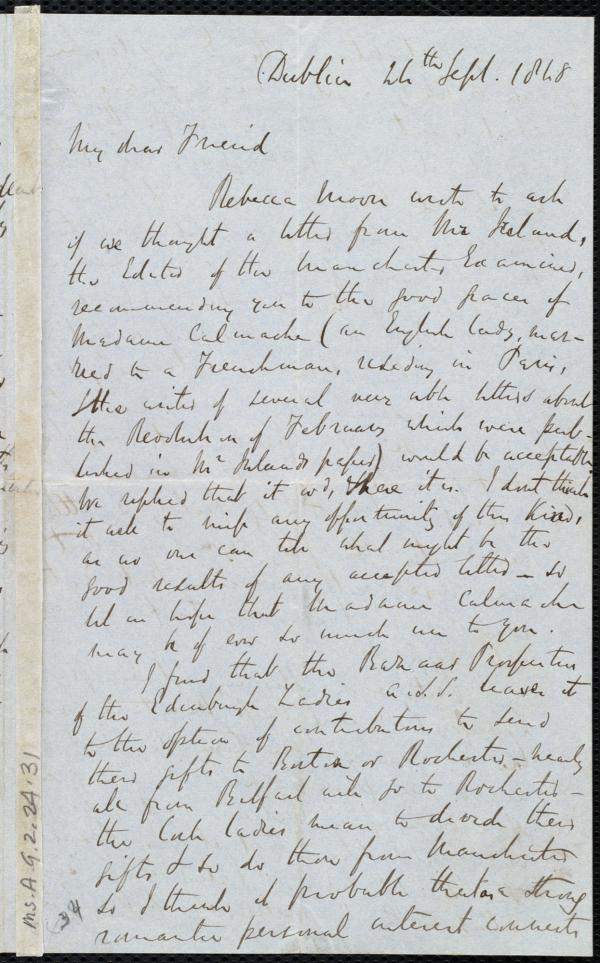 Dublin 26th Sept. 1848
My dear Friend
Rebecca Moore wrote to ask
if we thought a letter from Mr Ireland,
the Editor of the Manchester Examiner,
recommending you to the good graces of
Madame Calmache (an English lady, mar-
ried to a Frenchman, residing in Paris,
& the writer of several very able letters about
the Revolution of February which were pub-
lished in Mr Irelands paper) would be acceptable,
We replied that it wod, & here it is. I dont think
it well to miss any opportunity of this kind,
as no one can tell what might be the
good results of any accepted letter - so
let us hope that Madame Calmache
may be of ever so much use to you.
I find that the Bazaar Prospectus
of the Edinburgh Ladies A.S.S. leaves it
to the option of contributors to send
their gifts to Boston or Rochester - nearly
all from Belfast will go to Rochester -
the Cork ladies mean to divide their
gifts & so do those from Manchester
so I think it probable that as a strong
romantic personal interest connects
Ms. A. 9. 2. 24. 31
(34